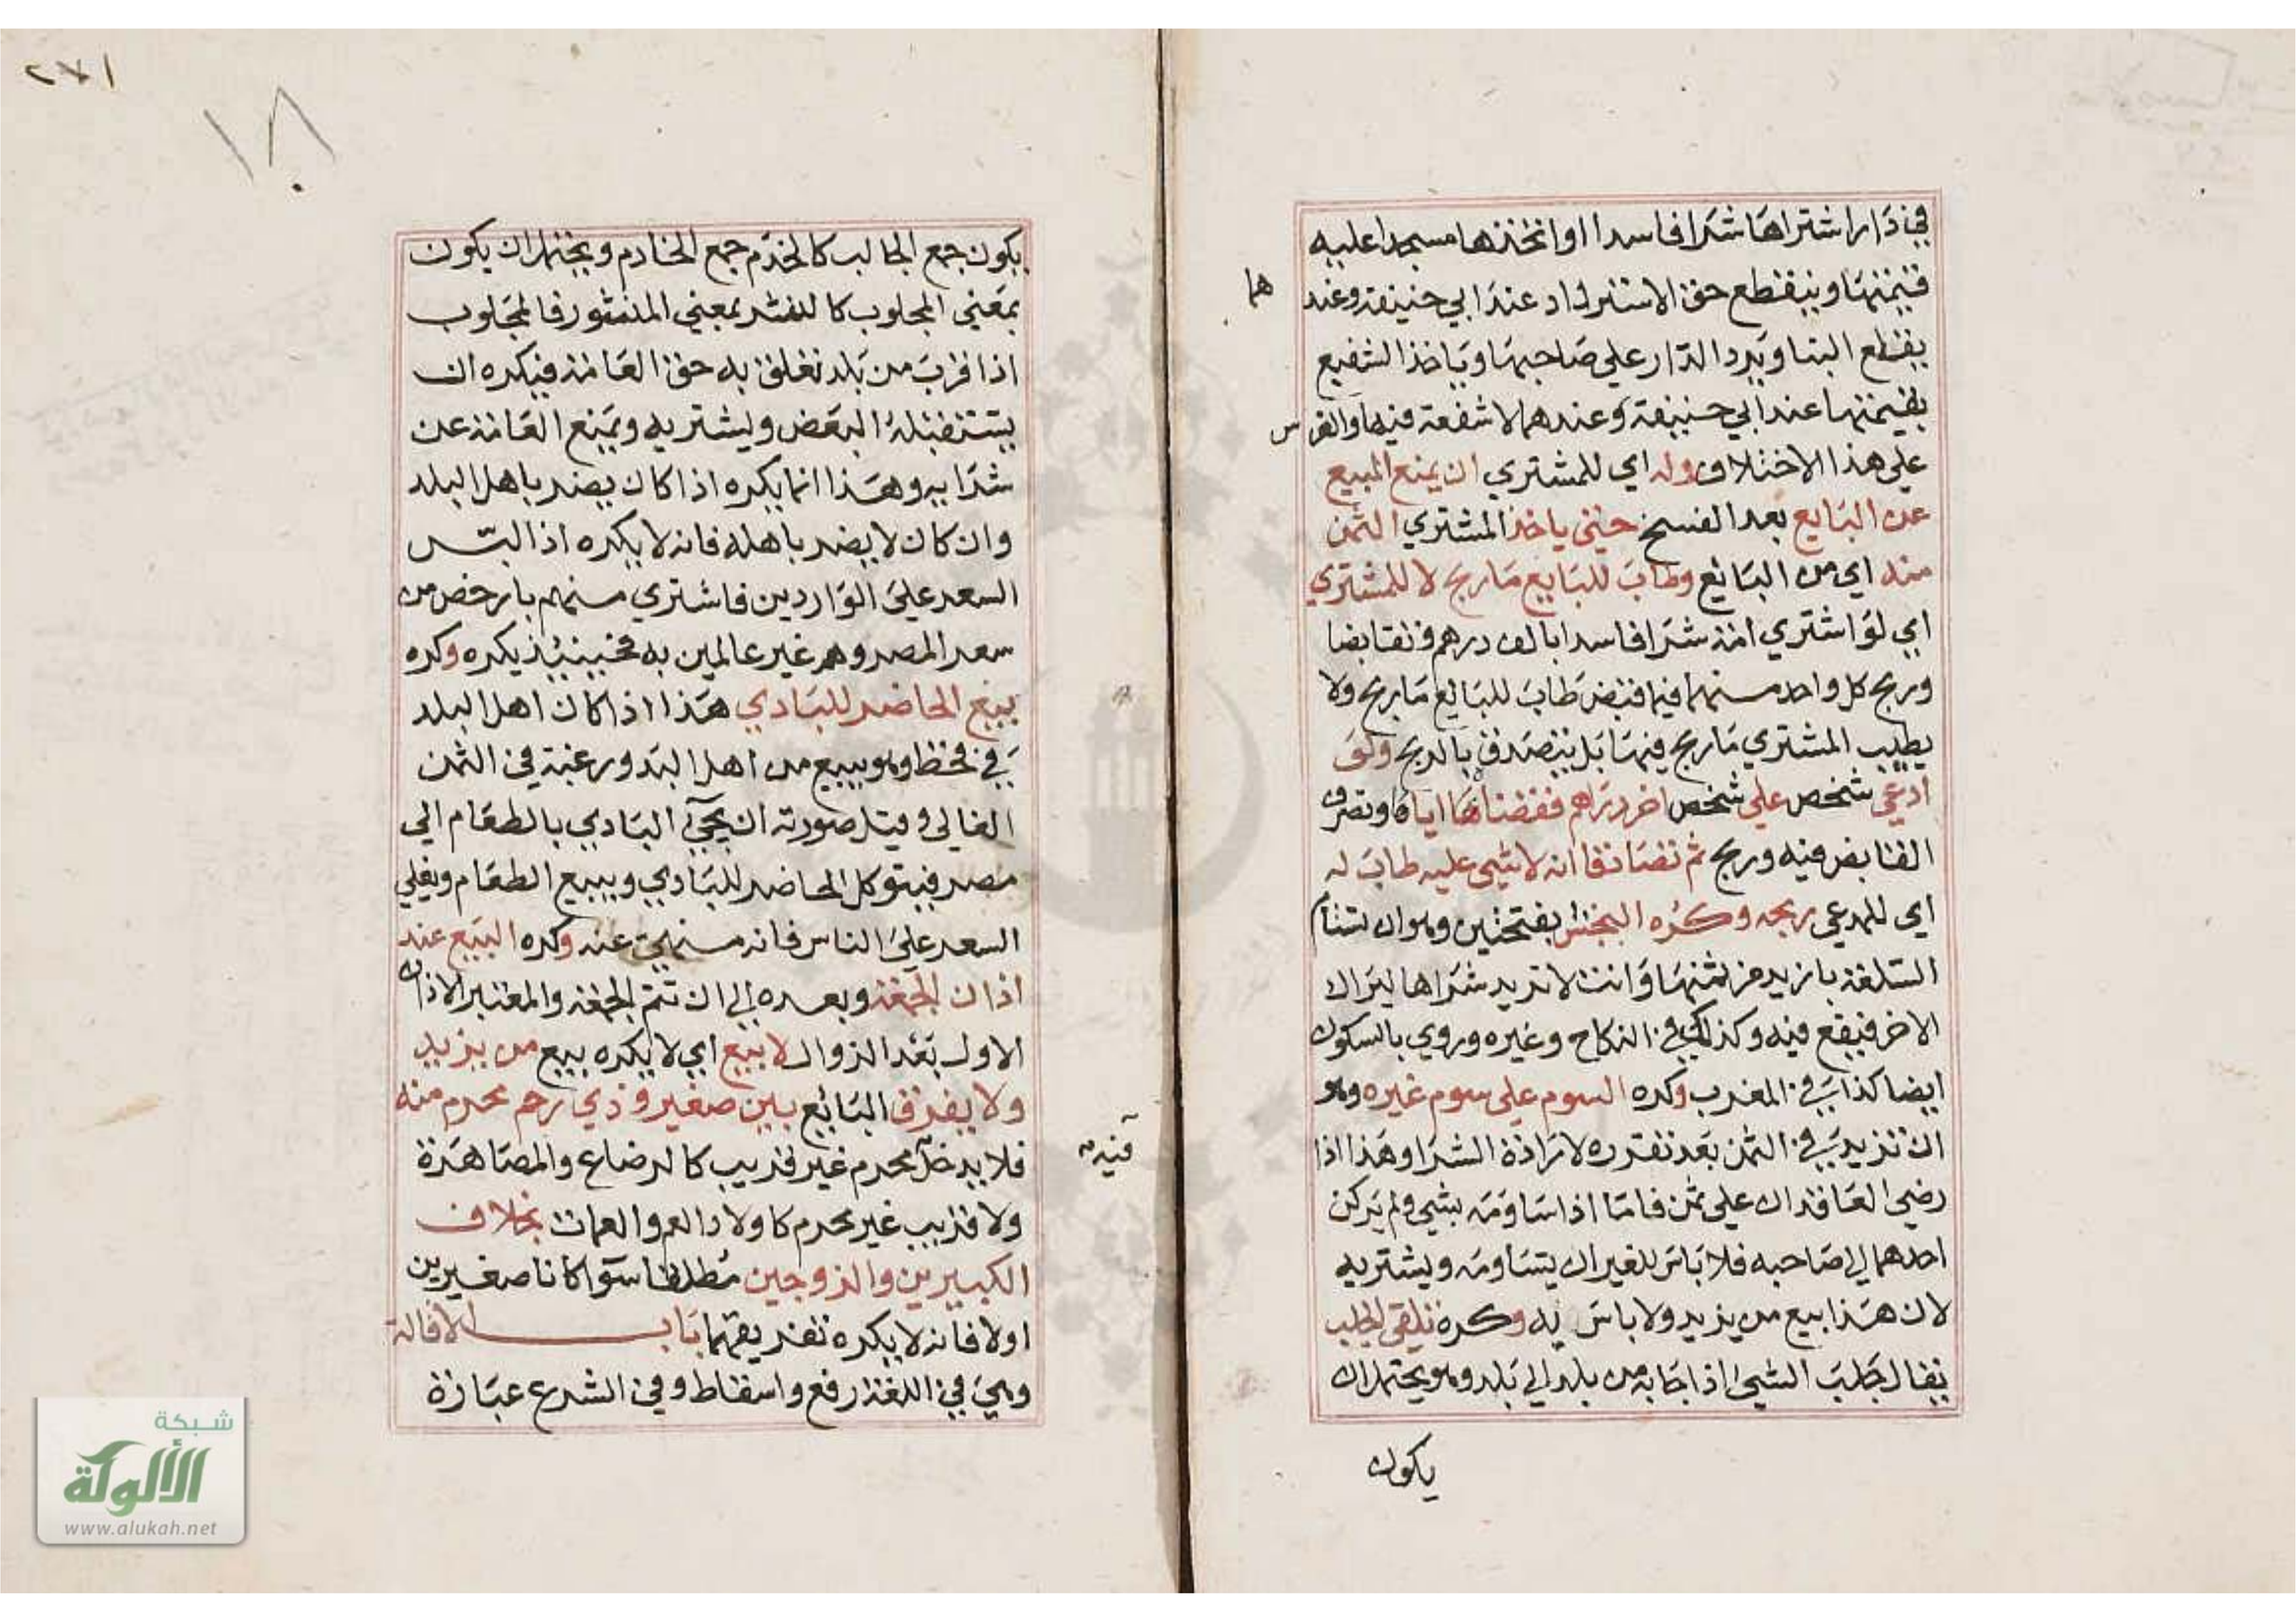 في دار اشتراها شرا فاسدا او اتخذها مسجدا عليه
قيمتها وينقطع حق الاسترداد عند ابي حنيفة وعند
هما
يقطع البنا ويرد الدار علي صاحبها وياخذ الشفيع
بقيمتها عند ابي حنيفة وعندهما لا شفعة فيها والغرس
علي هذا الاختلاف وله اي للمشتري ان يمنع المبيع
عن البايع بعد الفسخ حتي ياخذ المشتري الثمن
منه اي من البائع وطاب للبايع ما ربح لا للمشتري
اي لو اشتري امة شرا فاسدا بالف درهم وتقابضا
وربح كل واحد منهما فيما قبض طاب للبائع ما ربح ولا
يطيب المشتري ما ربح فيها بل يتصدق بالربح ولو
ادعي شخص علي شخص اخر دراهم فقضاها اياه وتصرف
القابض فيه وربح ثم تصادقا انه لا شي عليه طاب له
اي للمدعي ربحه وكره النجش بفتحتين وهو ان تستام
السلعة بازيد من ثمنها وانت لا تريد شراها ليراك
الاخر فيقع فيه وكذلك في النكاح وغيره وروي بالسكون
ايضا كذا في المغرب وكره السوم علي سوم غيره وهو
ان تزيد في الثمن بعد تقرره لارادة الشرا وهذا اذا
رضي العاقدان علي ثمن فاما اذا ساومه بشي ولم يركن
احدهما الي صاحبه فلا باس للغير ان يتساومه ويشتريه
لان هذا بيع من يزيد ولا باس به وكره تلقي الجلب
يقال جلب الشي اذا جا به من بلد الي بلد وهو يحتمل ان
يكون
٢٧١
١٨٠
يكون جمع الجالب كالخدم جمع الخادم ويحتمل ان يكون
بمعني المجلوب كالنشر بمعني المنشور فالمجلوب
اذا قرب من بلد تعلق به حق العامة فيكره ان
يستقبله البعض ويشتريه ويمنع العامة عن
شرايه وهذا انما يكره اذا كان يضر باهل البلد
وان كان لا يضر باهله فانه لا يكره اذا لبس
السعر علي الواردين فاشتري منهم بارخص من
سعر المصر وهم غير عالمين به فحينئذ يكره وكره
بيع الحاضر للبادي هذا اذا كان اهل البلد
في قحط وهو يبيع من اهل البدو رغبة في الثمن
الغالي وقيل صورته ان يجيئ البادي بالطعام الي
مصر فيتوكل الحاضر للبادي ويبيع الطعام ويغلي
السعر علي الناس فانه منهي عنه وكره البيع عند
اذان الجمعة وبعده الي ان تتم الجمعة والمعتبر الاذان
الاول بعد الزوال لا بيع اي لا يكره بيع من يزيد
ولا يفرق البائع بين صغير وذي رحم محرم منه
فلا يدخل محرم غير قريب كالرضاع والمصاهرة
ولا قريب غير محرم كاولاد العم والعمات بخلاف
الكبيرين والزوجين مطلقا سوا كانا صغيرين
اولا فانه لا يكره تفريقهما باب الاقالة
وهي في اللغة رفع واسقاط وفي الشرع عبارة
شبكة
الألوكة
www.alukah.net